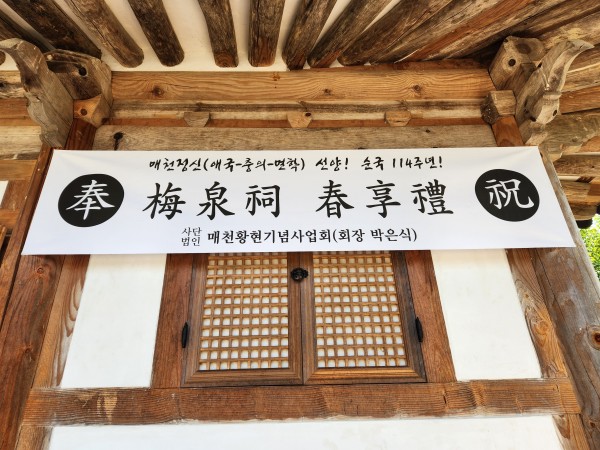 매천정신(애국-충의-면학) 선양! 순국 114주년!
奉 梅泉祠 春享禮 祝
사단법인 매천황현기념사업회(회장 박은식)